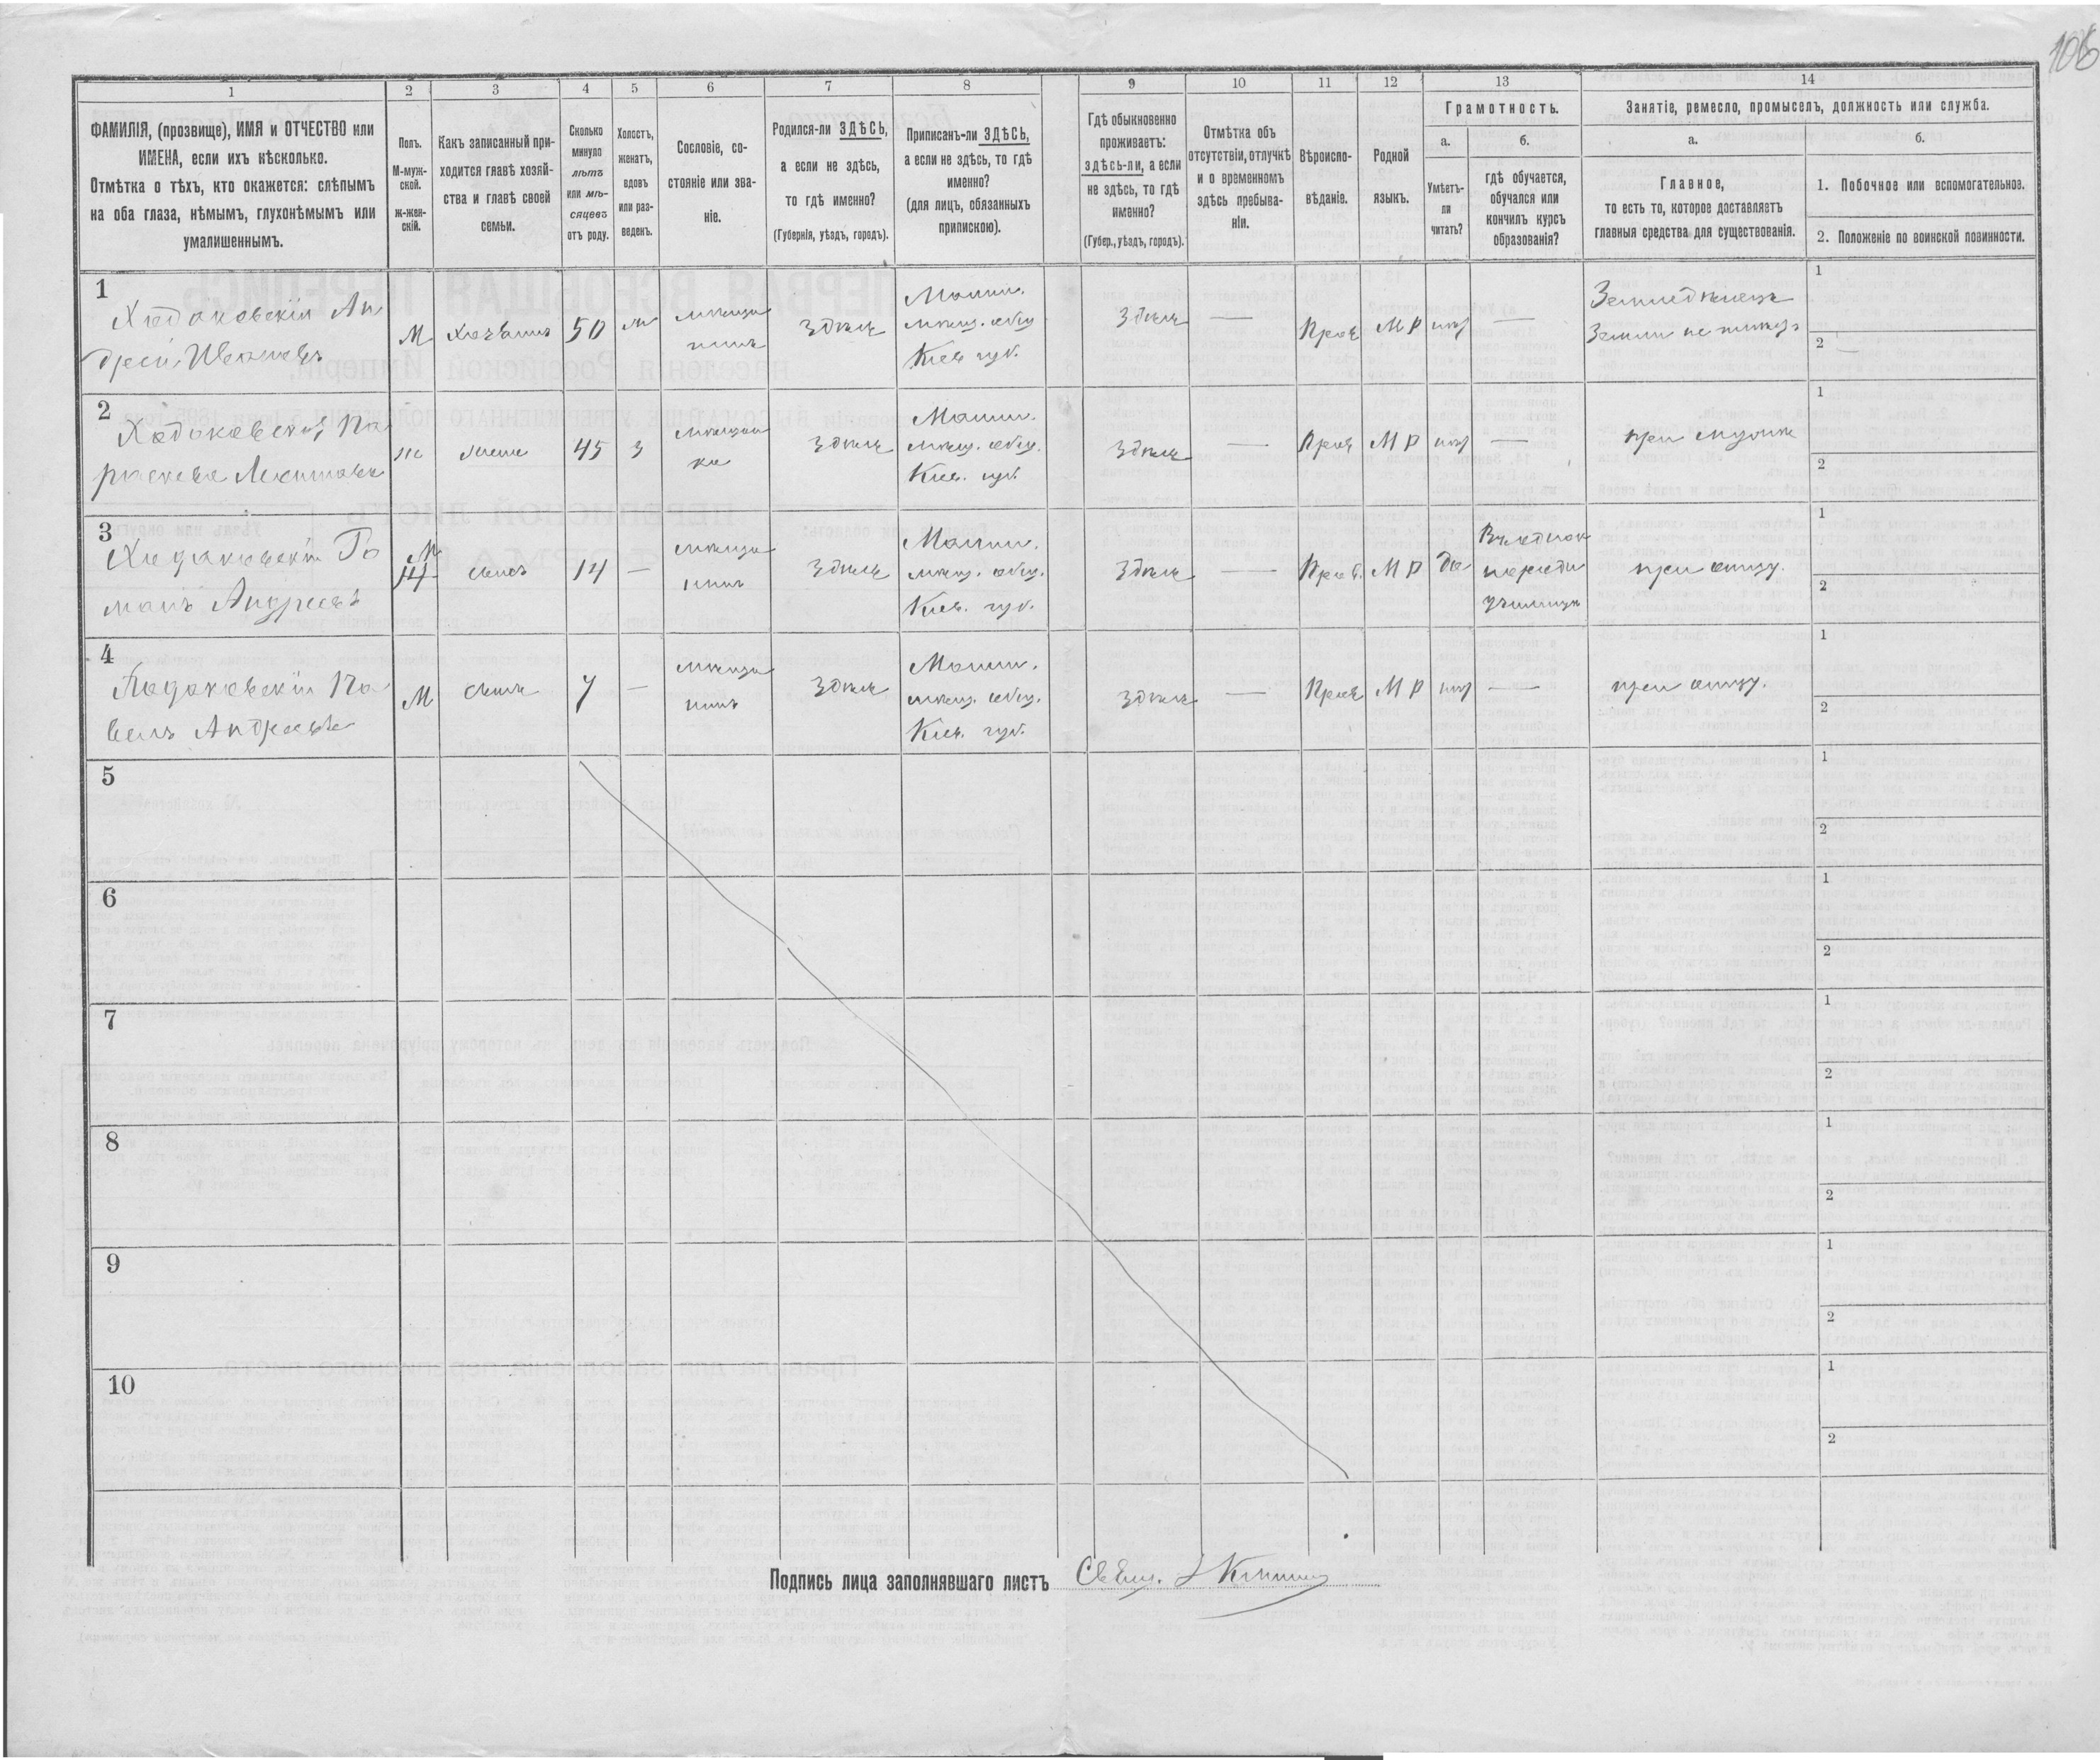 106
1
2
3
4
5
6
7
8
9
10
11
12
13
14
ФАМИЛІЯ, (прозвище), ИМЯ и ОТЧЕСТВО или
ИМЕНА, если ихъ нѣсколько.
Отмѣтка о тѣхъ, кто окажется: слѣпымъ
на оба глаза, нѣмымъ, глухонѣмымъ или
умалишеннымъ.
Полъ.
М-муж-
ской.
Ж-жен-
скій.
Какъ записанный при-
ходится главѣ хозяй-
ства и главѣ своей
семьи.
Сколько
минуло
лѣтъ
или мѣ-
сяцевъ
отъ роду.
Холостъ,
женатъ,
вдовъ
или раз-
веденъ.
Сословіе, со-
стояніе или зва-
ніе.
Родился-ли ЗДѢСЬ,
а если не здѣсь,
то гдѣ именно?
(Губернія, уѣздъ, городъ).
Приписанъ-ли ЗДѢСЬ,
а если не здѣсь, то гдѣ
именно?
(для лицъ, обязанныхъ
припискою).
Гдѣ обыкновенно
проживаетъ:
здѣсь-ли, а если
не здѣсь, то гдѣ
именно?
(Губер., уѣздъ, городъ).
Отмѣтка объ
отсутствіи, отлучкѣ
и о временномъ
здѣсь пребыва-
ніи.
Вѣроиспо-
вѣданіе.
Родной
языкъ.
Грамотность.
а.
Умѣетъ-
ли
читать?
б.
гдѣ обучается,
обучался или
кончилъ курсъ
образованія?
Занятіе, ремесло, промыселъ, должность или служба.
а.
Главное,
то есть то, которое доставляетъ
главныя средства для существованія.
б.
1. Побочное или вспомогательное.
2. Положеніе по воинской повинности.
1
Ходаковскій Ан
дрей Ивановъ
М
Хозяинъ
50
ж
мѣща
нинъ
Здѣсь
мѣщ. общ
Кіев губ.
Здѣсь
—
Прав
МР
нѣт
—
Земледѣлецъ
1
2
2
Ходаковская Па
раскева
ж
жена
45
З
мѣщан
ка
Здѣсь
мѣщ. общ.
Кіев. губ.
Здѣсь
—
Прав
МР
нѣт
—
при мужѣ
1
2
3
Ходаковскій Ро
манъ Андреевъ
М
сынъ
14
—
мѣща
нинъ
Здѣсь
мѣщ. общ.
Кіев. губ.
Здѣсь
—
Прав.
МР
да
народн
училищѣ
при отцу.
1
2
4
Ходаковскій Па
велъ Андреевъ
М
сынъ
7
—
мѣща
нинъ
Здѣсь
мѣщ. общ.
Кіев. губ.
Здѣсь
—
Прав
МР
нѣт
—
при отцу.
1
2
5
1
2
6
1
2
7
1
2
8
1
2
9
1
2
10
1
2
Подпись лица заполнявшаго листъ